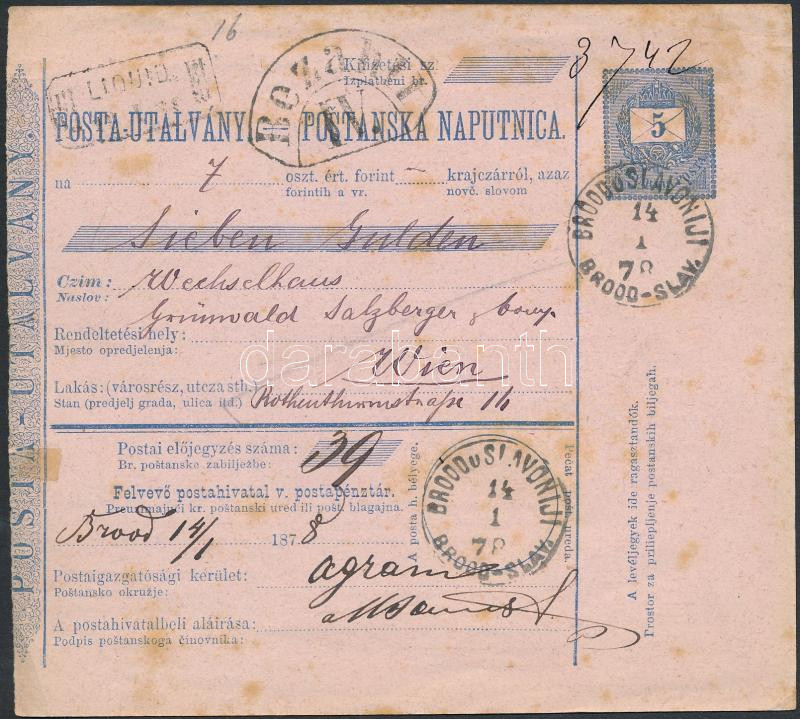 16
LIQUID.
Bezahlt
IV.
Kifizetési sz.
Izplatbeni br.
3742
POSTA-UTALVÁNY. POŠTANSKA NAPUTNICA.
5
na 7 oszt. ért. forint – krajczárról, azaz
forintih a vr. novč. slovom
Sieben Gulden
BROOD U SLAVONIJI
14
1
78
BROOD-SLAV.
Czim: Wechselhaus
Naslov:
Grünwald Salzberger & Comp.
Rendeltetési hely:
Mjesto opredjelenja:
Wien
Lakás: (városrész, utcza stb.)
Stan (predjelj grada, ulica itd.) Rothenthurmstraße 16
darabanth
Postai előjegyzés száma: 39
Br. poštanske zabilježbe:
Felvevő postahivatal v. postapénztár.
Preuzimajući kr. poštanski ured ili pošt. blagajna.
Brood 14/1 1878
Postaigazgatósági kerület: Agram
Poštansko okružje:
A postahivatalbeli aláirása:
Podpis poštanskoga činovnika:
A posta h. bélyege.
Pečat pošt. ureda.
BROOD U SLAVONIJI
14
1
78
BROOD-SLAV.
A levéljegyek ide ragasztandók.
Prostor za priliepljenje postanskih biljegah.
POSTA-UTALVÁNY.